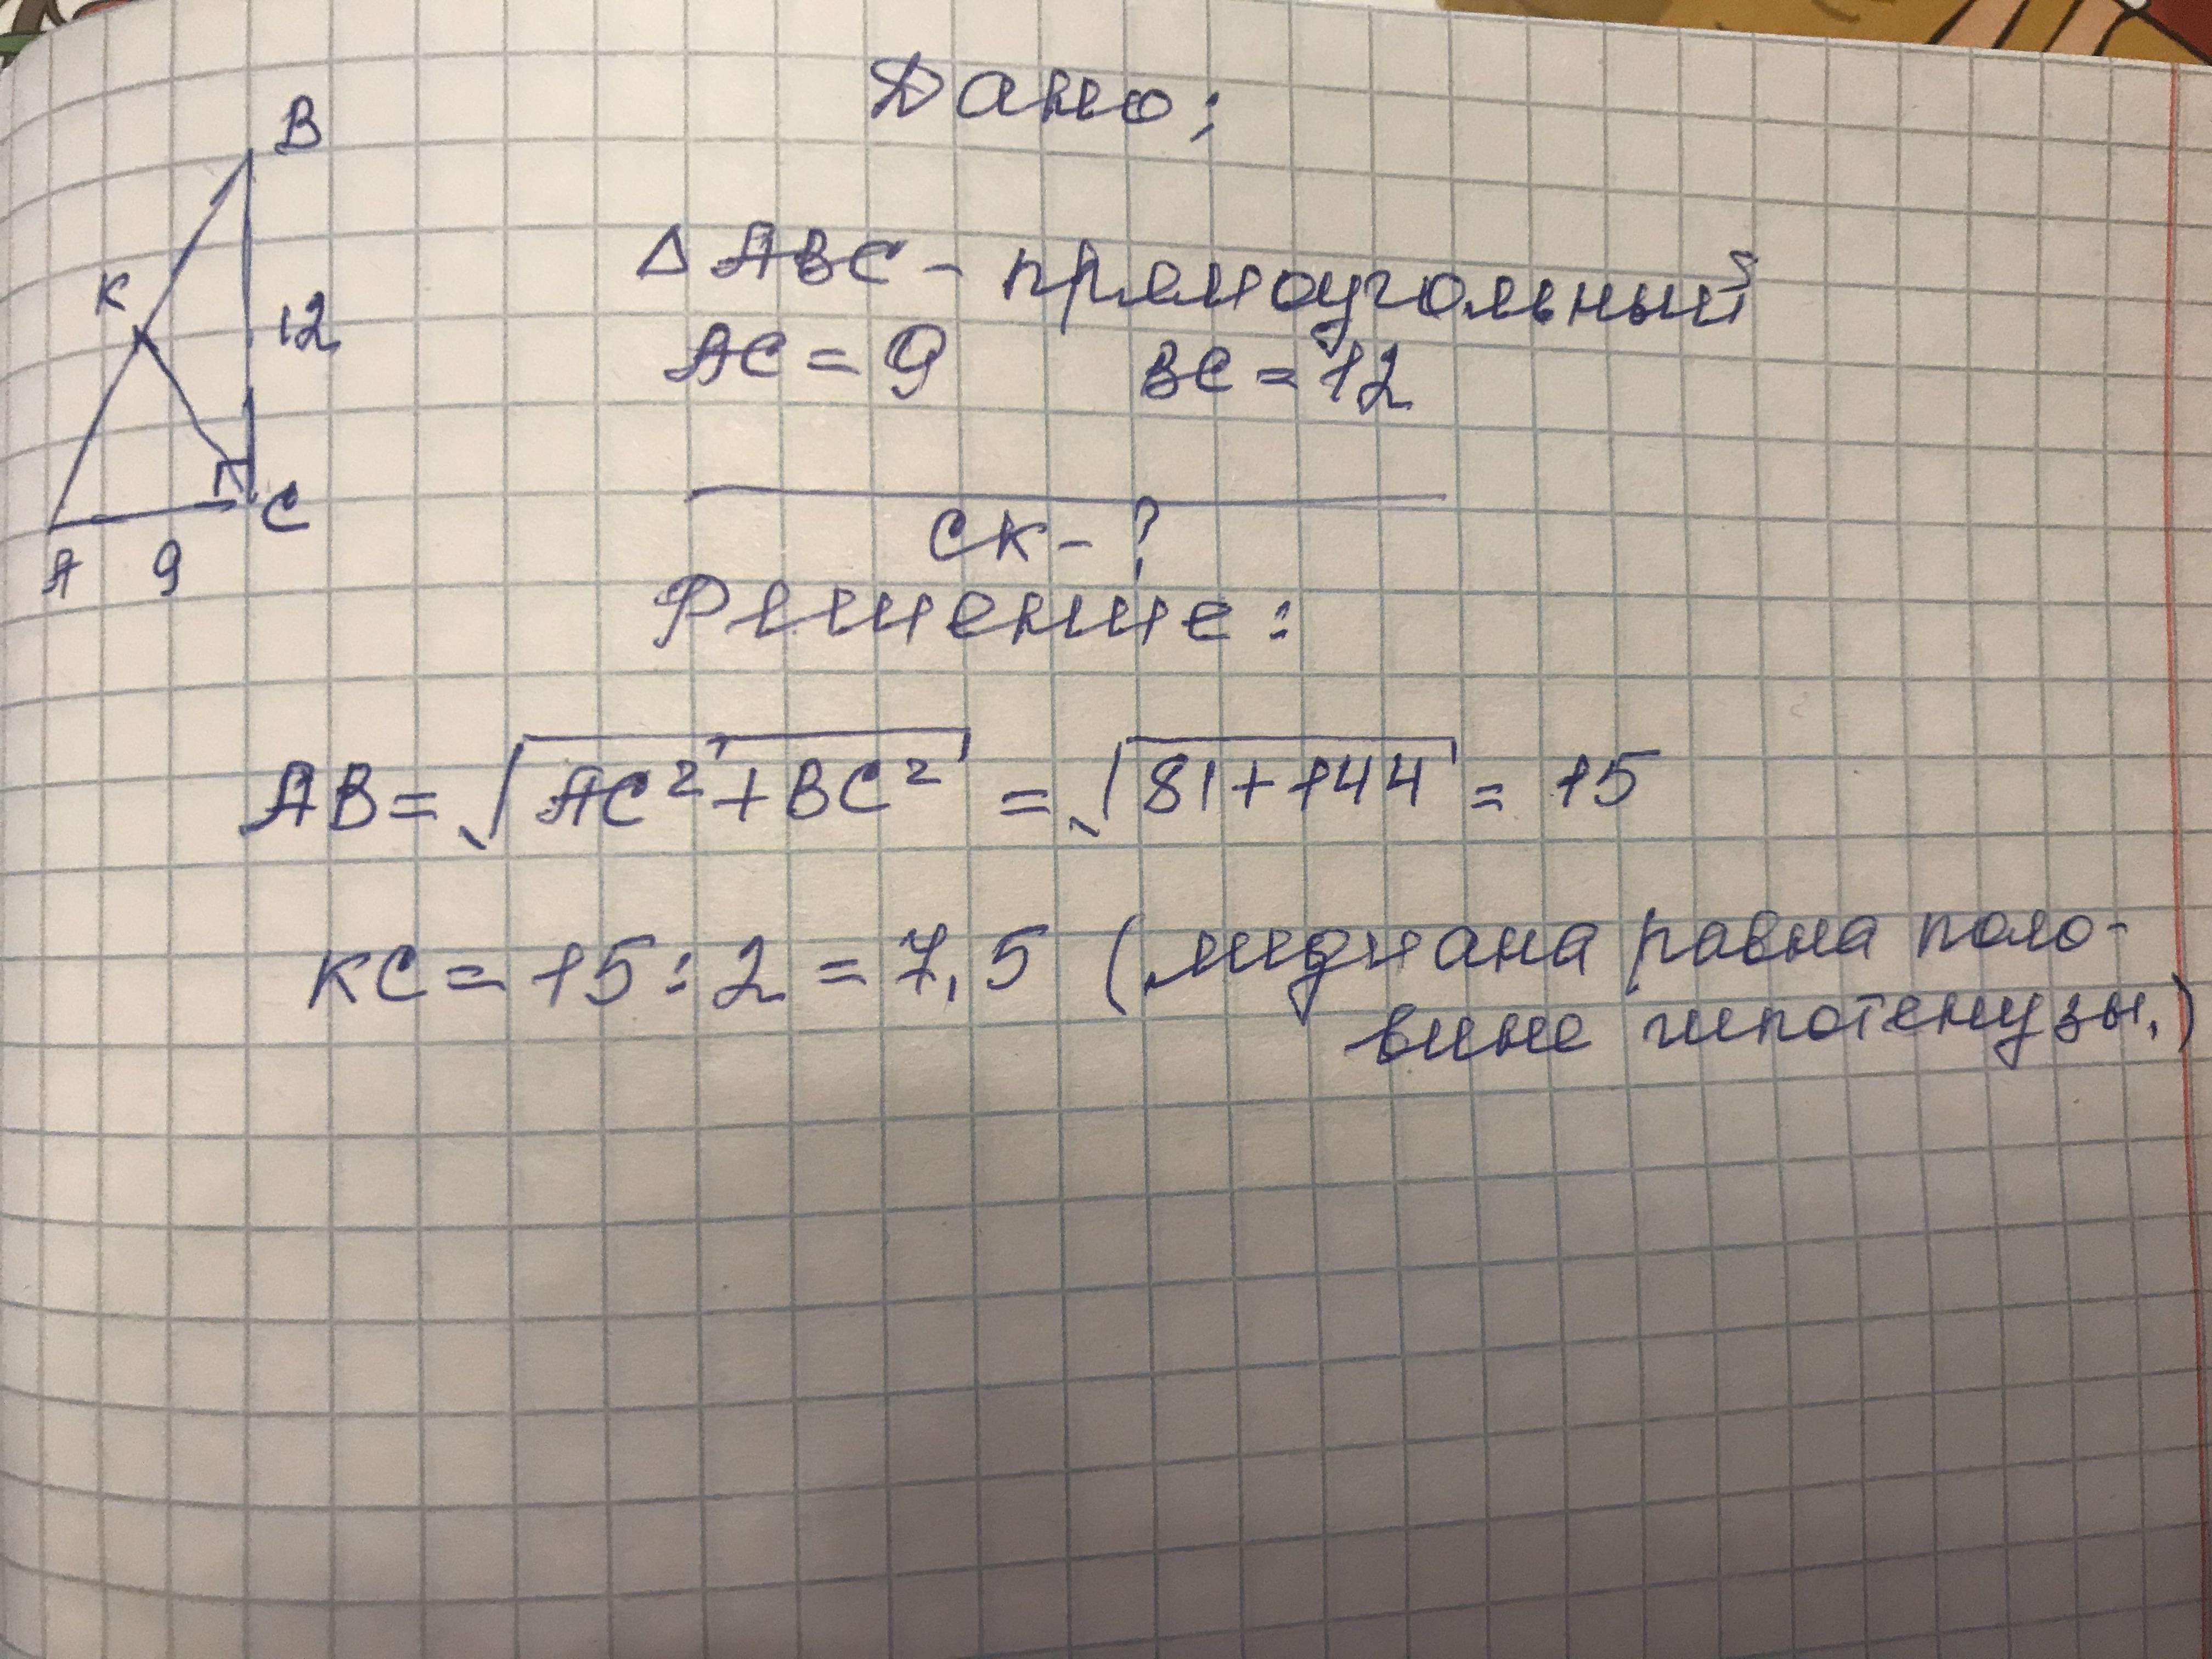 Дано:
B
△ABC - прямоугольный
K
12
AC = 9 BC = 12
C
A 9
CK - ?
Решение:
AB = √AC² + BC² = √81 + 144 = 15
KC = 15 : 2 = 7,5 (медиана равна поло-
вине гипотенузы.)